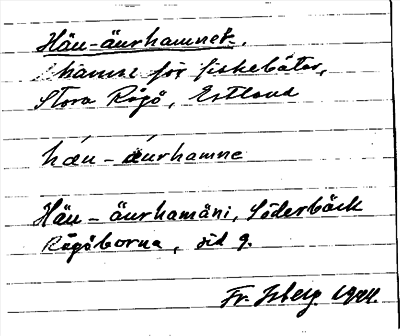 Häu-äurhamnet.
hamne för fiskebåtar,
Stora Rågö, Estland
hæu - áurhamne
Häu - äurhamäni, Söderbäck
Rågöborna, sid 9.
Fr. Isberg 1944.